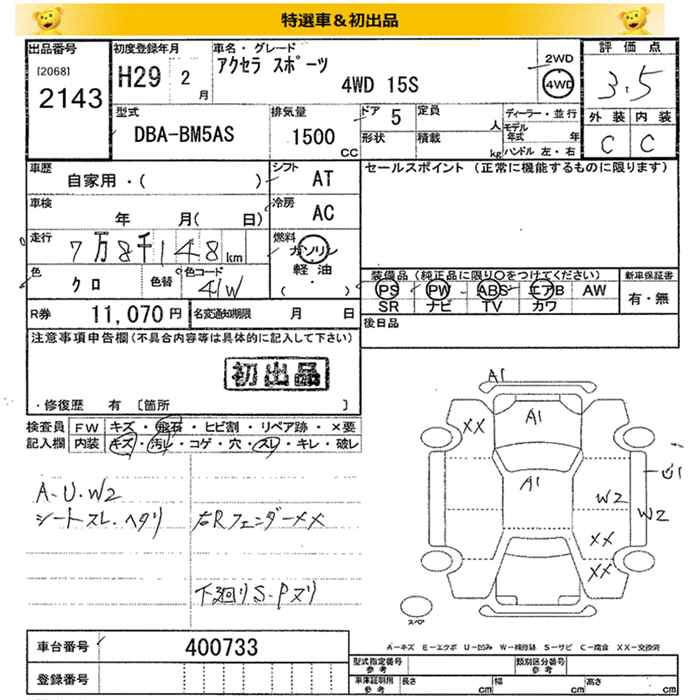 特選車＆初出品
出品番号 初度登録年月 車名・グレード 評価点
[2068] H29 2月 アクセラ スポーツ 2WD
2143 4WD 15S 4WD 3.5
型式 排気量 ドア 5 定員 人 ディーラー・並行 外装 内装
DBA-BM5AS 1500 CC 形状 積載 kg モデル年式 年 C C
ハンドル 左・右
車歴 シフト セールスポイント (正常に機能するものに限ります)
自家用・( ) AT
車検 冷房
年 月( 日) AC
走行 燃料
7万8千148km ガソリン
色 色替 色コード 軽油
クロ 41W ( ・ )
装備品 (純正品に限り○をつけてください) 新車保証書
PS PW ABS エアB AW 有・無
SR ナビ TV カワ
R券 11,070円 名変通知期限 月 日 後日品
注意事項申告欄 (不具合内容等は具体的に記入して下さい)
初出品
・修復歴 有 [箇所 ]
検査員 FW キズ・飛石・ヒビ割・リペア跡・×要
記入欄 内装 キズ・汚レ・コゲ・穴・スレ・キレ・破レ
A・U・W2
シートスレ・ヘタリ 右Rフェンダーメメ
下廻りS・Pヌリ
A1
XX A1
A1 U1
W2 W2
XX
XX
スペア
A-キズ E-エクボ U-凹み W-補修跡 S-サビ C-腐食 XX-交換済
車台番号 400733
登録番号
型式指定番号 参考 類別区分番号 参考
車庫証明用 参考 長さ cm 幅 cm 高さ cm